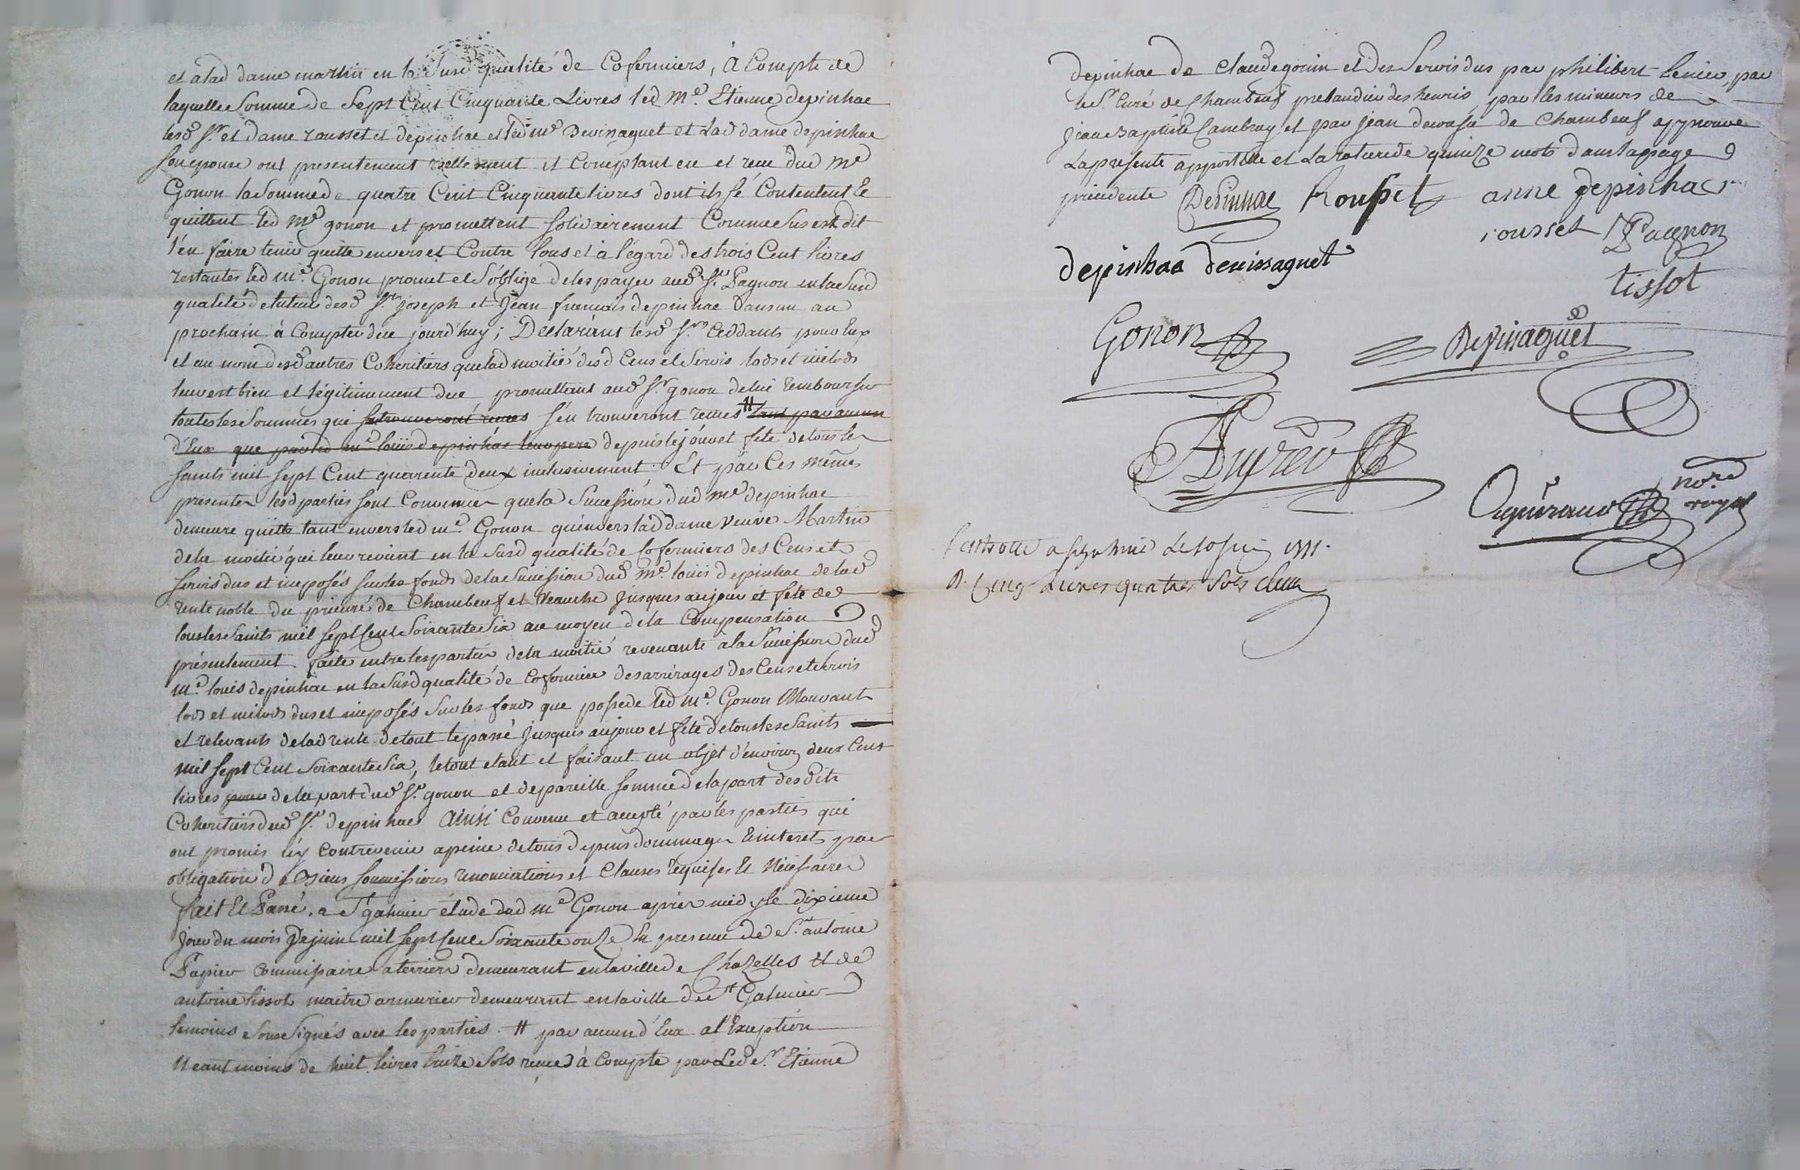 et alad dame martin en la Susd qualité de Cofermiers, à Compte de
laquelle Somme de Sept Cent Cinquante Livres led Me. Etienne depinhac
lesd Sr. et dame rousset et depinhac et led me Devissaguet et Lad dame depinhac
son epouse ont presentement reellement et Comptant eu et receu dud Me
Gonon la Somme de quatre Cent Cinquante livres dont ils se Contentent le
quittent led Me gonon et promettent solidairement Comme Sus est dit
l'en faire tenir quitte envers et Contre tous et à l'égard des trois Cent livres
restantes led Me. Gonon promet et s'oblige de les payer aud Sr. Pagnon en la Susd
qualité de tuteur desd Srs joseph et Jean françois depinhac dans un an
prochain à Compter de ce jourd'huy; Déclarant lesd Srs Ceddants pour Eux
et au nom desd autres Coheritiers que lad moitié desd Cens et Servis lods et milods
leur est bien et légitimement due, promettant aud Sr. gonon de lui rembourser
toutes les Sommes qui se trouveront receues s'en trouveront receues # tant par aucun
d'Eux que par led me louis depinhac leur pere depuis le jour et fete de tous les
saints mil sept Cent quarente deux inclusivement. Et par Ces mêmes
presentes lesd parties sont Convenues que la Succession dud Me depinhac
demeure quitte tant envers led me. Gonon qu'envers lad dame veuve Martin
de la moitié qui leur revient en la Susd qualité de Cofermiers des Cens et
servis dus et imposés sur les fonds de la Succession dud Me. louis depinhac de lad
rente noble du prieuré de Chambeuf et Veauche jusques au jour et fete de
tous les Saints mil sept Cent Soixante Six au moyen de la Compensation
présentement faite entre les parties de la moitié revenante à la Succession dud
Me. louis depinhac en la Susd qualité de Cofermier des arrérages des Cens et Servis
lods et milods dus et imposés Sur les fonds que possede led Me. Gonon Mouvant
et relevants de lad rente de tout le passé jusques au jour et fete de tous les Saints
mil sept Cent Soixante Six, le tout etant et faisant un objet d'environ deux Cent
livres pour de la part dud Sr. gonon et de pareille somme de la part desdits
Coheritiers dud Sr. depinhac Ainsi Convenu et accepté par les parties qui
ont promis n'y Contrevenir a peine de tous depens dommages Et interets par
obligation de biens soumissions renonciations et Clauses requises Et Nécessaires
fait Et Passé a St galmier étude dud Me Gonon après midy le dixieme
jour du mois de juin mil sept Cent Soixante onze En presence de Sr. antoine
Papier Commissaire a terriers demeurant en la ville de Chazelles et de
antoine tissot maitre armurier demeurant en la ville de St Galmier
temoins Soussignés avec les parties. # par aucun d'Eux a l'Exception
Neantmoins de huit livres huit Sols receus à Compte par Led Sr. Etienne
depinhac de Claude gonin et des Servis dus par philibert par
le Sr. Curé de Chambeuf par les mineurs de
jean Baptiste Cambray et par jean de Chambeuf approuvé
La presente apostille et La rature de quinze mots dans la page
précédente Depinhac Rousset anne depinhac
rousset Pagnon
depinhac devissaguet
tissot
Gonon Devissaguet
nore
royal
Controllé a St galmier Le 10 juin 1771.
R. Cinq Livres quatre Sols